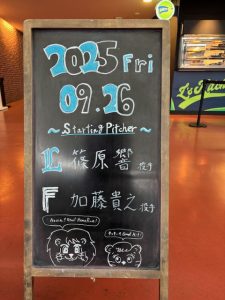 2025 Fri
09.26
~Starting Pitcher~
L 篠原 響 投手
F 加藤貴之 投手